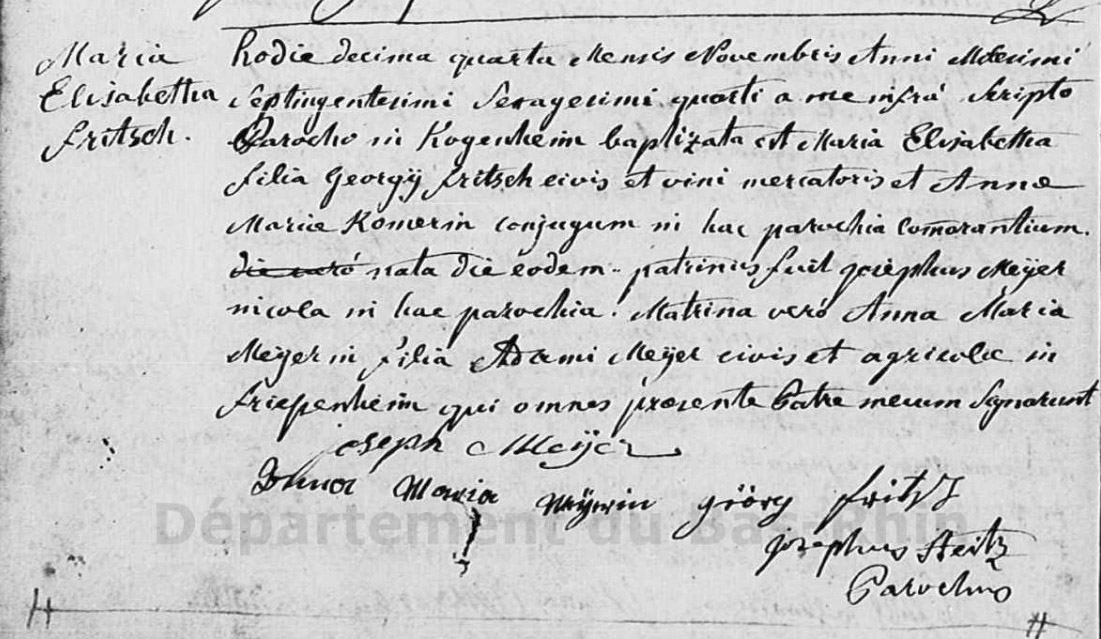 Maria
Elisabetha
fritsch.
hodie decima quarta Mensis Novembris Anni Millesimi
Septingentesimi Sexagesimi quarti a me infrá Scripto
Parocho in Kogenheim baptizata est Maria Elisabetha
filia Georgÿ fritsch civis et vini mercatoris et Annæ
Mariæ Komerin conjugum in hac parochia Comorantium.
die veró nata die éodem patrinus fuit josephus Meÿer
incola in hac parochia. Matrina veró Anna Maria
Meÿerin filia Adami Meÿer civis et agricolæ in
friesenheim qui omnes præsente Patre mecum Signarunt
joseph Meÿer
Anna Maria Meÿerin Görg fritsz
Département du Bas-Rhin
josephus Steitz
Parochus